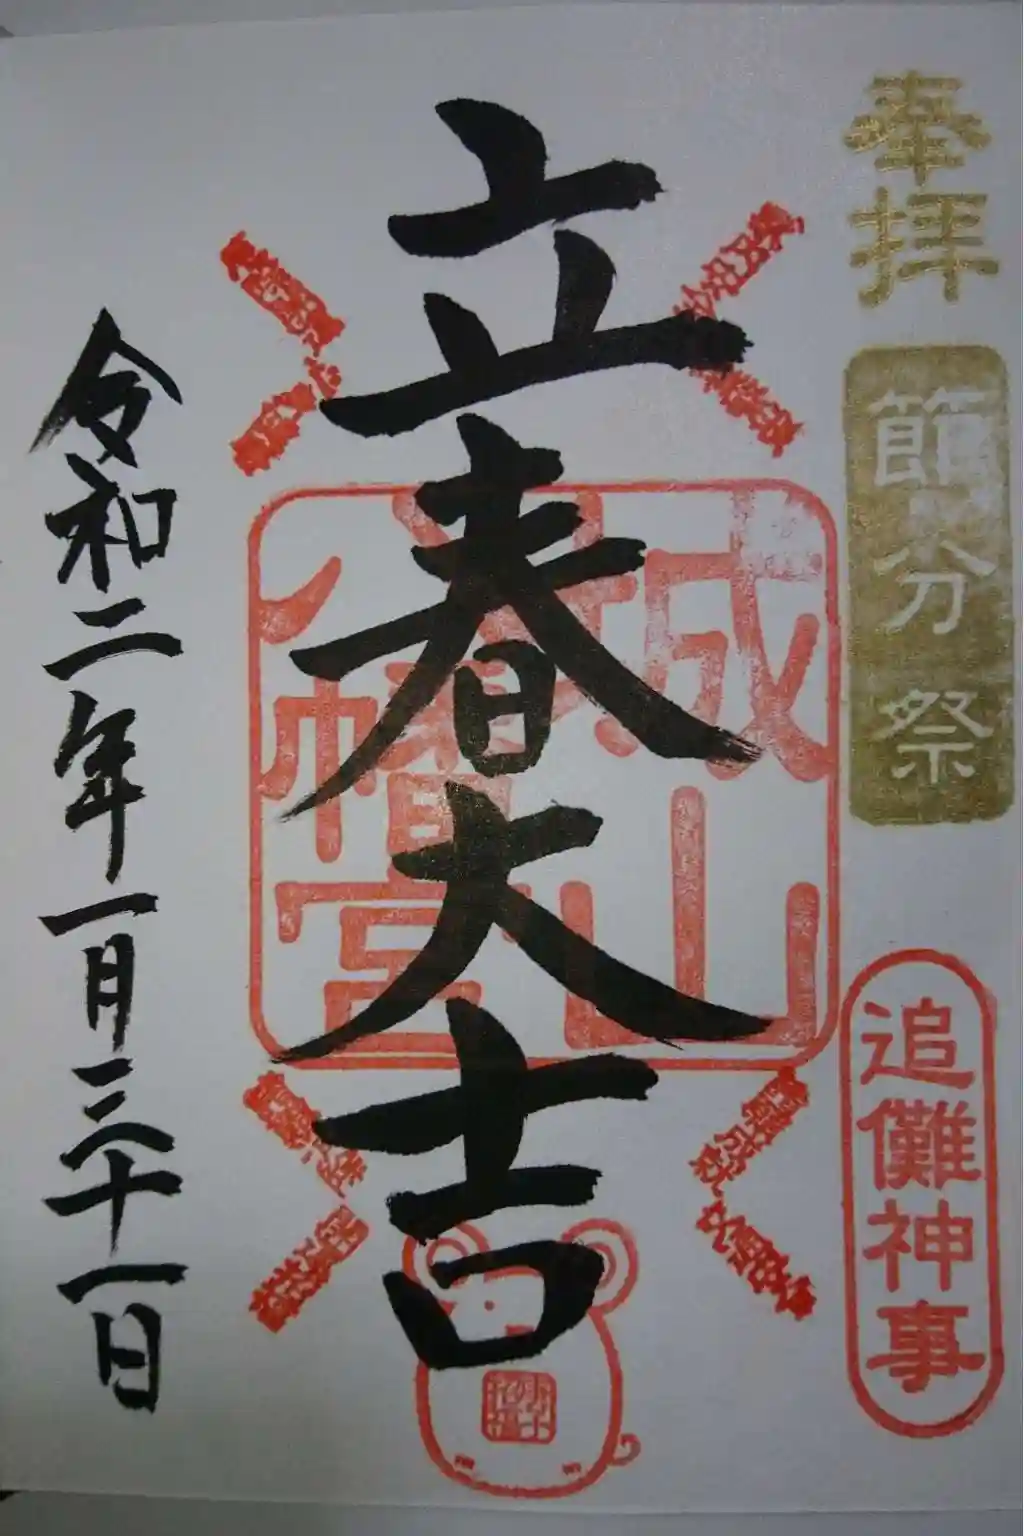 奉拝
節分祭
追儺神事
立春大吉
城山
八幡宮
令和二年一月三十一日